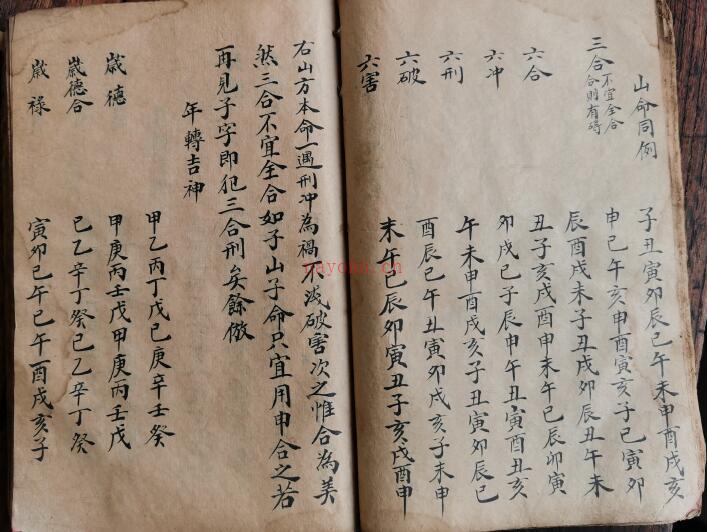 山命同例 子丑寅卯辰巳午未申酉戌亥
三合 不宜全合
合則有碍
申巳午亥申酉寅亥子巳寅卯
辰酉戌未子丑戌卯辰丑午未
六合 丑子亥戌酉申未午巳辰卯寅
六冲 卯戌巳子辰申午丑寅酉丑亥
六刑 午未申酉戌亥子丑寅卯辰巳
六破 酉辰巳午丑寅卯戌亥子未申
六害 未午巳辰卯寅丑子亥戌酉申
右山方本命一遇刑冲為禍不破害次之惟合為美
然三合不宜全合如子山子命只宜用申合之若
再見子字即犯三合刑矣餘倣
年轉吉神
甲乙丙丁戊己庚辛壬癸
歲德 甲庚丙壬戊甲庚丙壬戊
歲德合 己乙辛丁癸己乙辛丁癸
歲祿 寅卯巳午巳午酉戌亥子